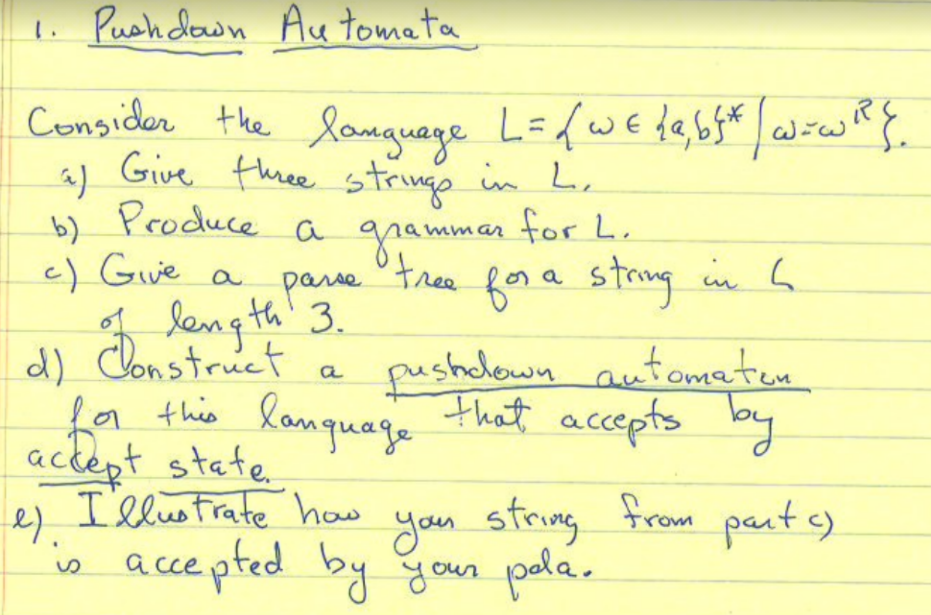 1. Pushdown Automata
Consider the language L = { w ∈ {a,b}* | w = w^R }.
a) Give three strings in L.
b) Produce a grammar for L.
c) Give a parse tree for a string in L
of length 3.
d) Construct a pushdown automaton
for this language that accepts by
accept state.
e) Illustrate how your string from part c)
is accepted by your pda.